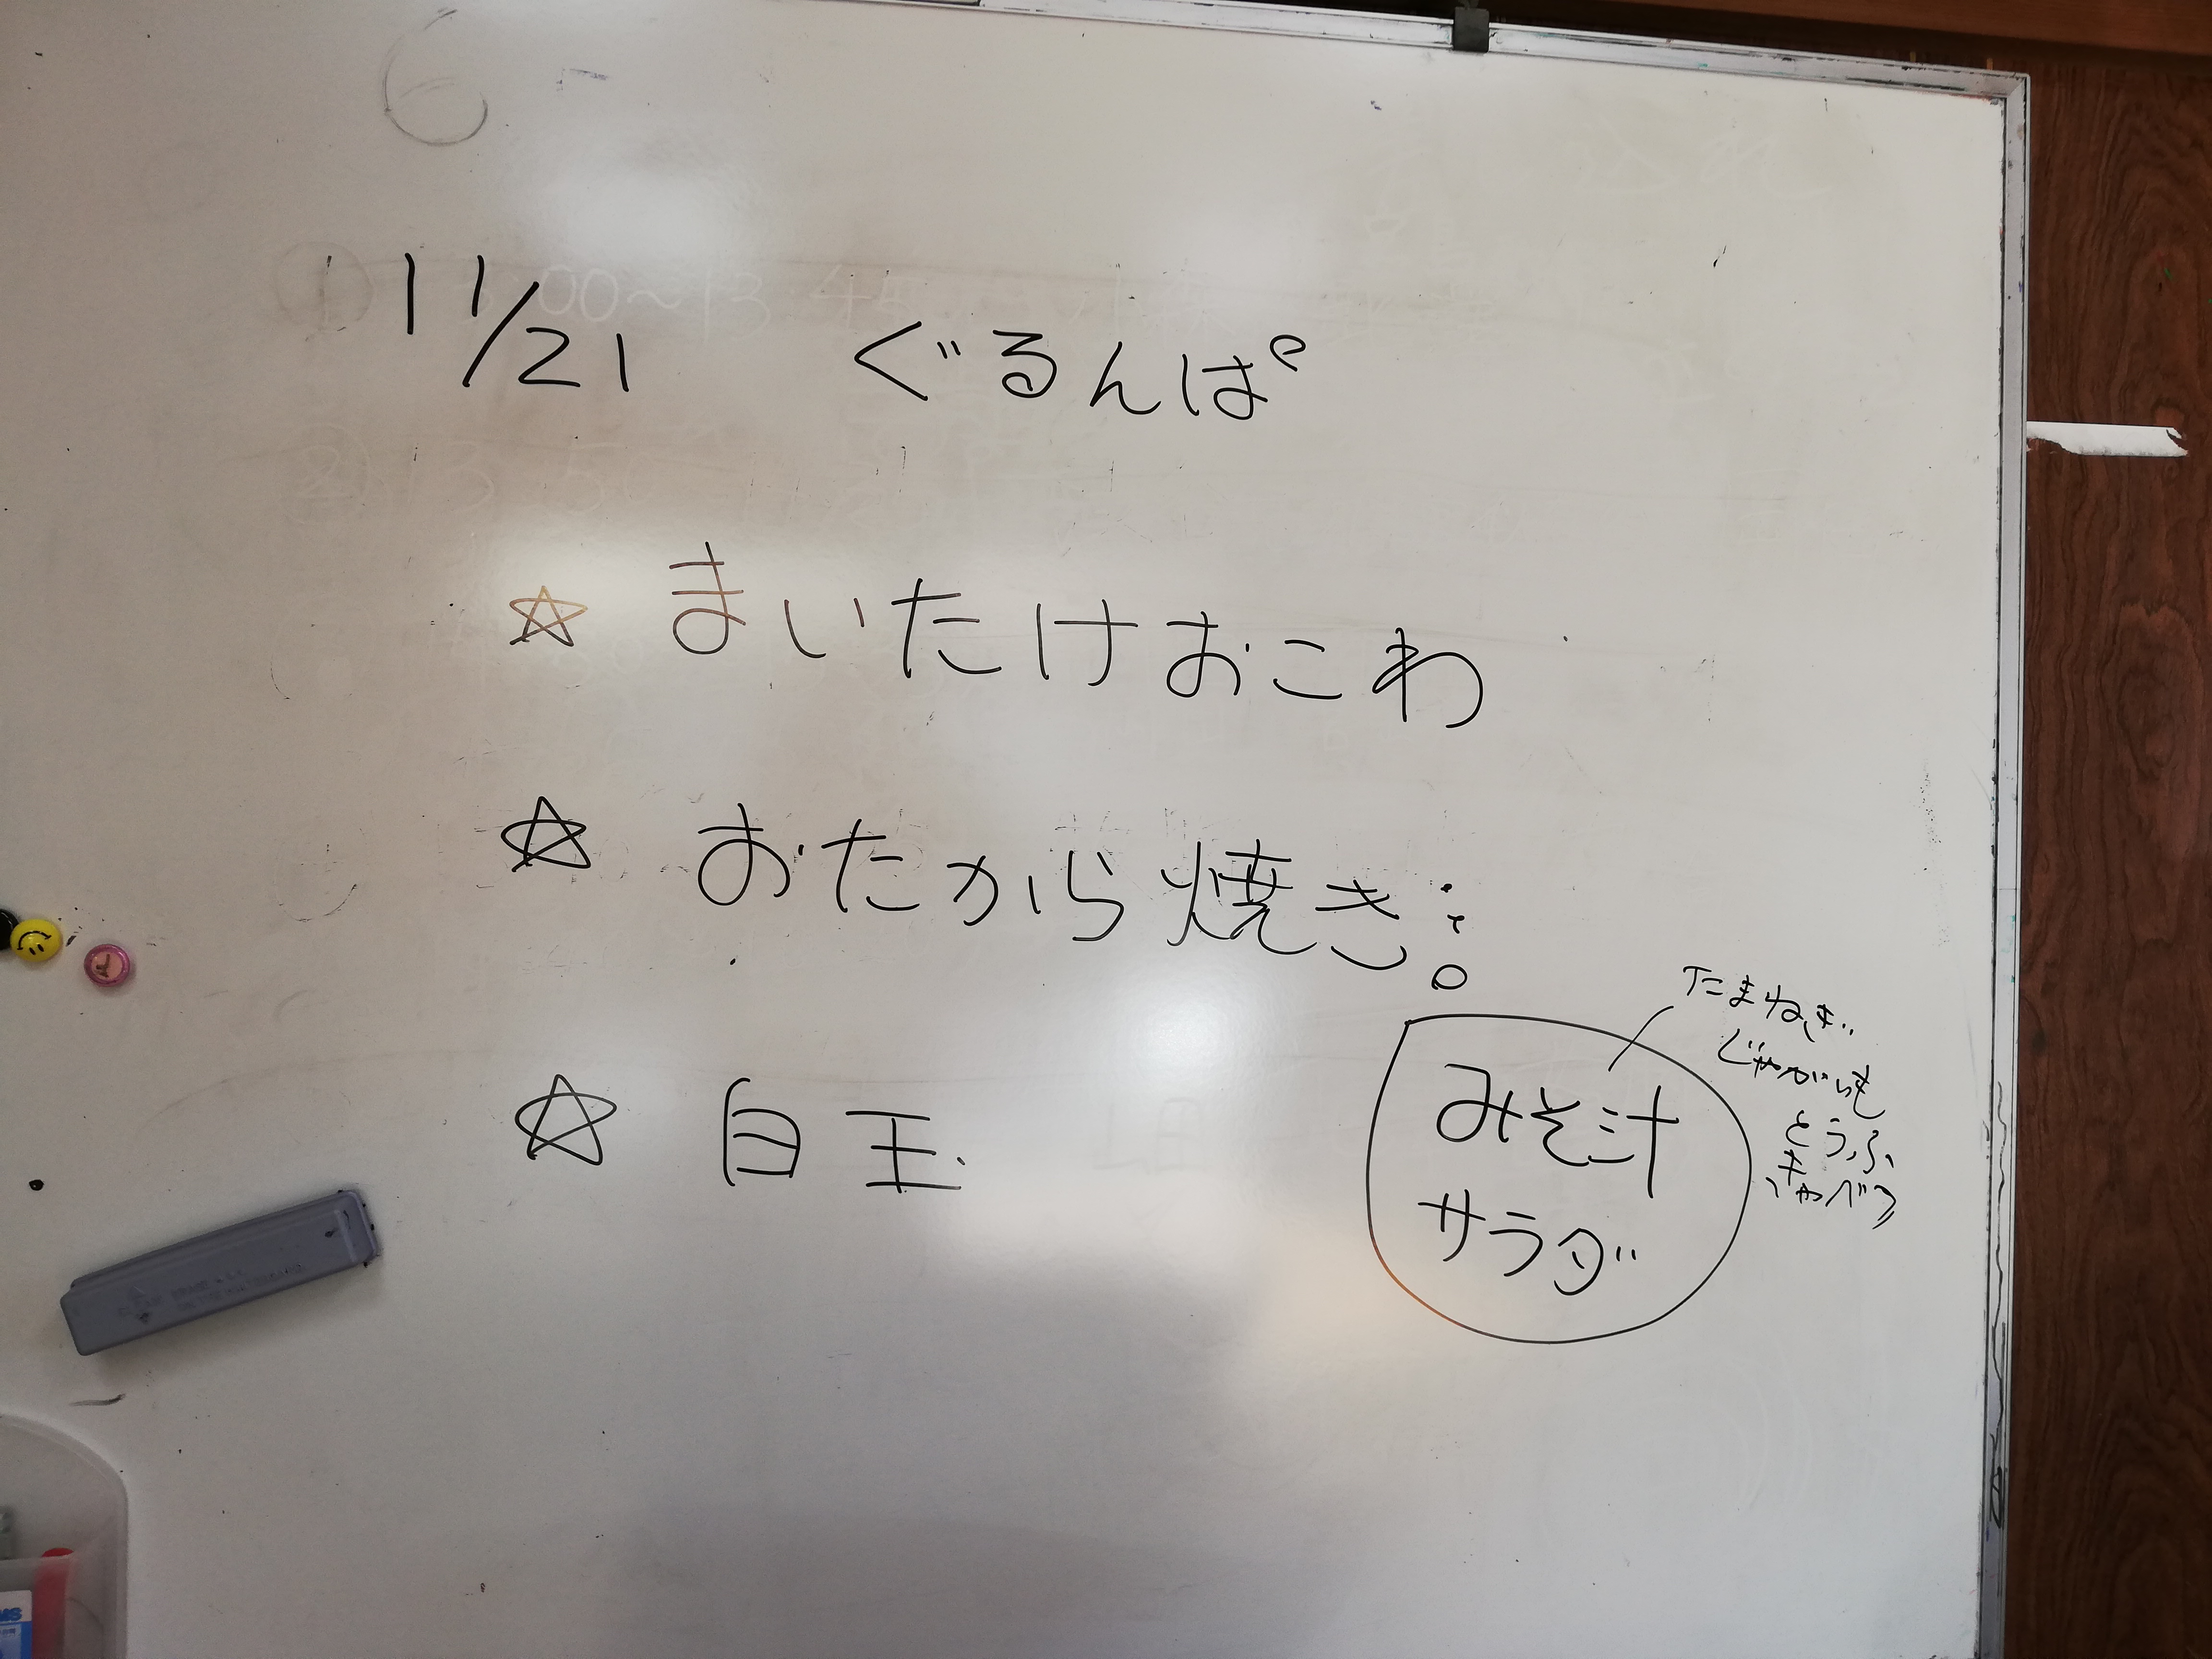 11/21 ぐるんぱ
☆ まいたけおこわ
☆ おたから焼き
☆ 白玉
みそ汁
サラダ
たまねぎ
じゃがいも
とうふ
キャベツ